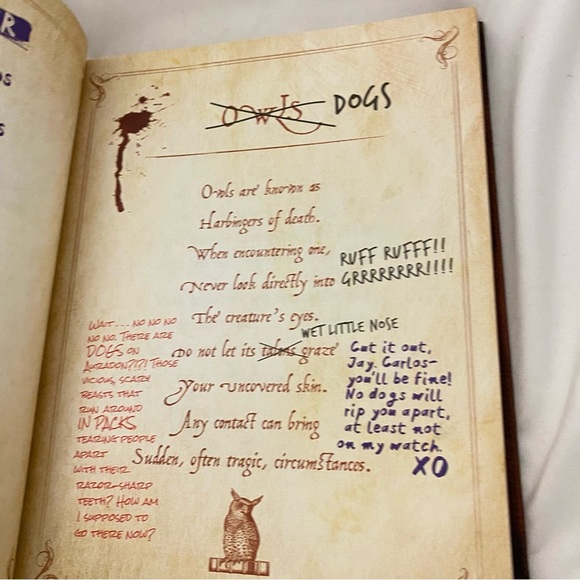 R
OS
S
OWLS DOGS
Owls are known as
Harbingers of death.
When encountering one,
Never look directly into
The creature's eyes.
Do not let its talons graze
Your uncovered skin.
Any contact can bring
Sudden, often tragic, circumstances.
RUFF RUFFF!!
GRRRRRRRR!!!!
WET LITTLE NOSE
WAIT . . . NO NO NO
NO NO. THERE ARE
DOGS ON
AURADON?!?! THOSE
VICIOUS, SCARY
BEASTS THAT
RUN AROUND
IN PACKS,
TEARING PEOPLE
APART
WITH THEIR
RAZOR-SHARP
TEETH? HOW AM
I SUPPOSED TO
GO THERE NOW?
Cut it out,
Jay. Carlos–
you'll be fine!
No dogs will
rip you apart,
at least not
on my watch.
XO